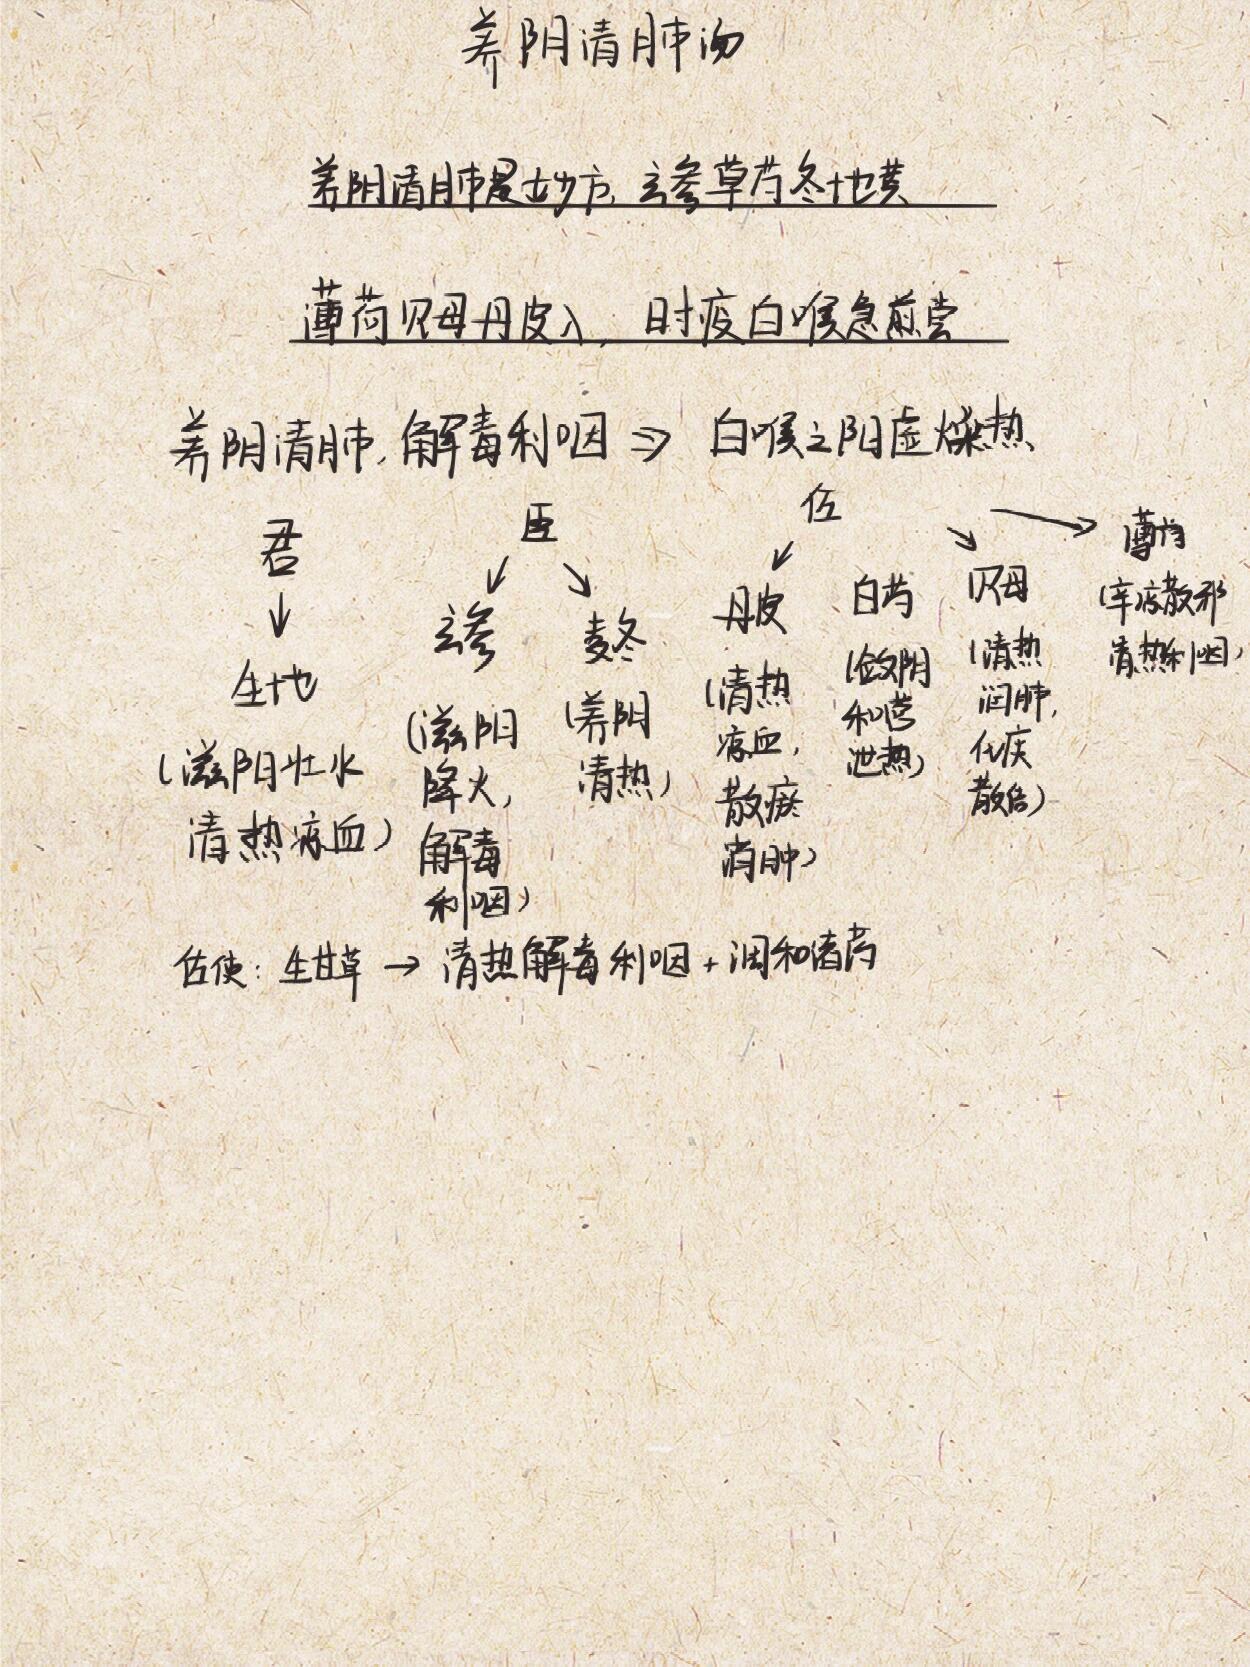 养阴清肺汤
养阴清肺是妙方,玄参草芍冬地黄
薄荷贝母丹皮入,时疫白喉急煎尝
养阴清肺,解毒利咽⇒白喉之阴虚燥热
君
↓
生地
(滋阴壮水
清热凉血)
臣
↙ ↘
玄参
(滋阴
降火,
解毒
利咽)
麦冬
(养阴
清热)
佐
↙ ↘ →
丹皮
(清热
凉血,
散瘀
消肿)
白芍
(敛阴
和营
泄热)
贝母
(清热
润肺,
化痰
散结)
薄荷
(辛凉散邪
清热利咽)
佐使:生甘草→清热解毒利咽+调和诸药